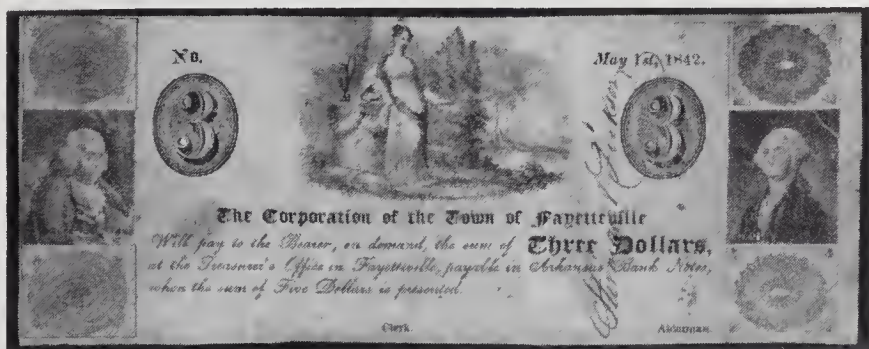 No.
May 1st, 1842.
3
3
The Corporation of the Town of Fayetteville
Will pay to the Bearer, on demand, the sum of Three Dollars,
at the Treasurer's Office in Fayetteville, payable in Arkansas Bank Notes,
when the sum of Five Dollars is presented.
Clerk.
Alderman.